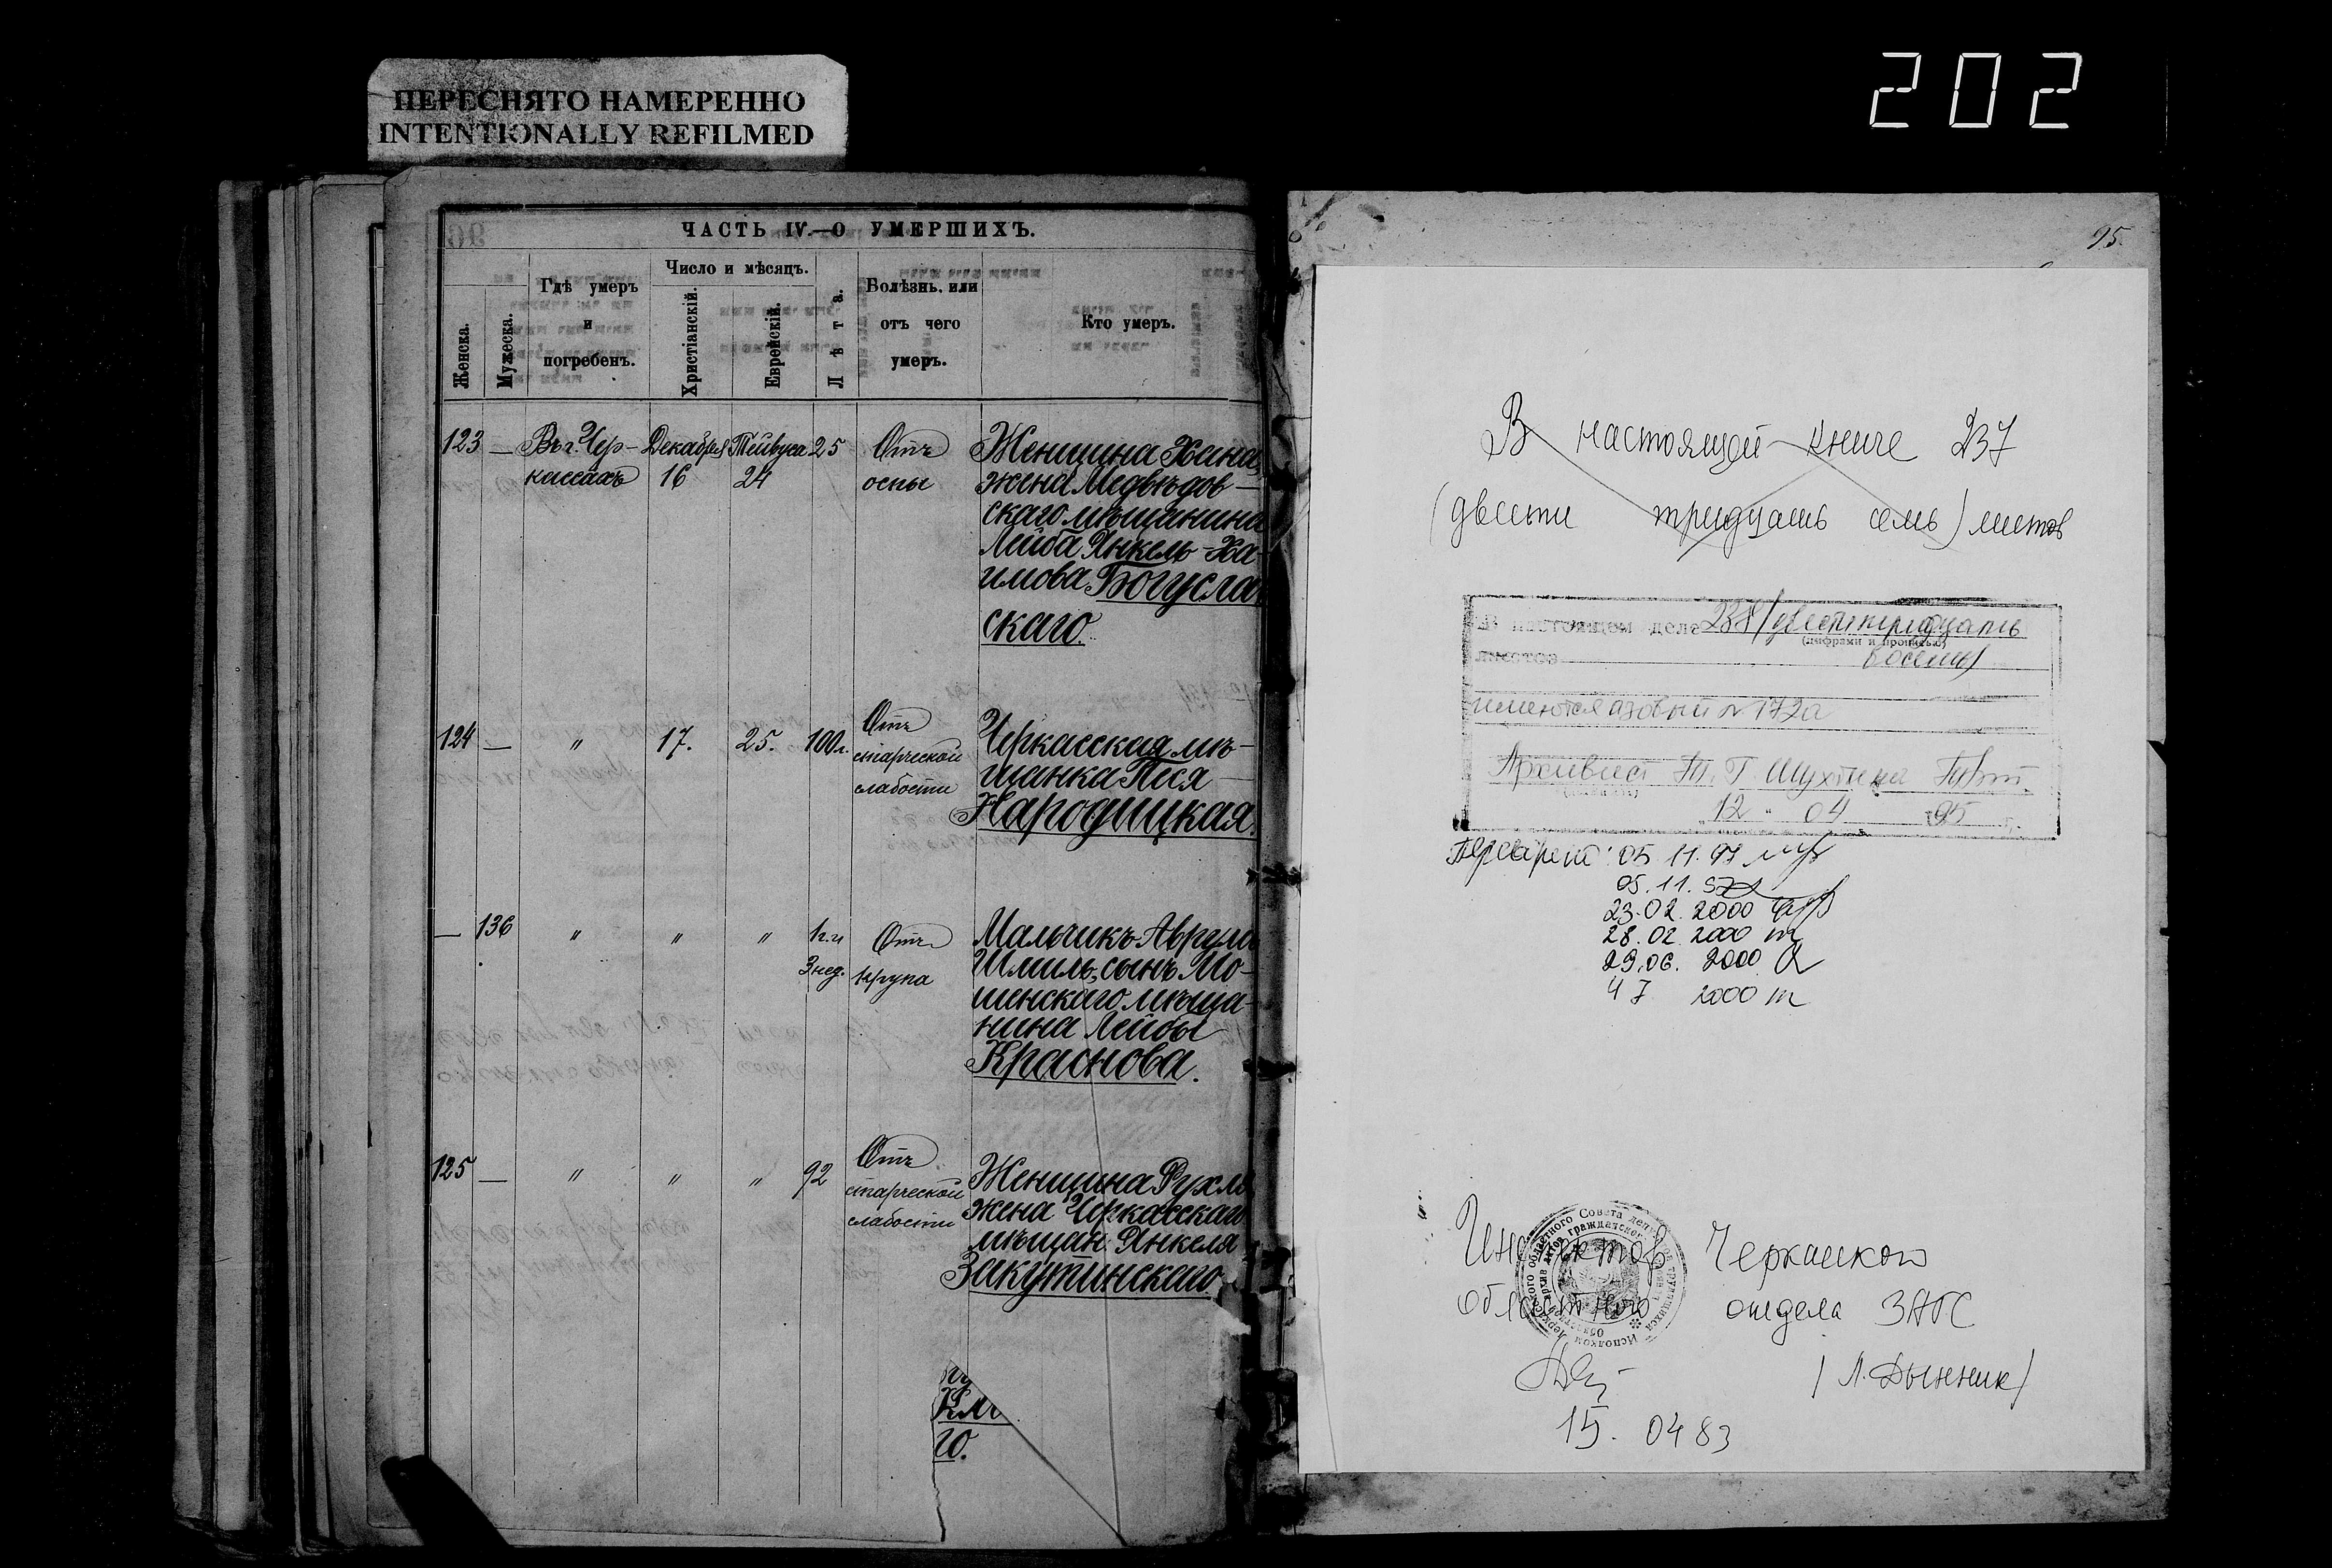 ПЕРЕСНЯТО НАМЕРЕННО
INTENTIONALLY REFILMED
202
ЧАСТЬ IV.—О УМЕРШИХЪ.
Женска.
Мужеска.
Гдѣ умеръ
и
погребенъ.
Число и мѣсяцъ.
Христіанскій.
Еврейскій.
Лѣта.
Болѣзнь, или
отъ чего
умеръ.
Кто умеръ.
123 — Въ г. Чер-
кассахъ
Декабря
16
Тейвуса
24
25
Отъ
оспы
Женщина Хана
жена Медвѣдов-
скаго мѣщанина
Лейба Янкель-Ха-
имова Богусла
скаго.
124 — " 17. 25. 100 л.
Отъ
старческой
слабости
Черкасская мѣ-
щанка Песя
Народицкая.
— 136 " " "
1 г. и
3 нед.
Отъ
крупа
Мальчикъ Аврумъ
Шмиль, сынъ Мо-
шенскаго мѣща-
нина Лейбы
Краснова.
125 — " " " 92
Отъ
старческой
слабости
Женщина Рухля
жена Черкасскаго
мѣщан. Янкеля
Закутинскаго
го.
95
В настоящей книге 237
(двести тридцать семь) листов
В настоящем деле 238/двести тридцать
(цифрами и прописью)
восемь/
листов
имеются азовый № 172а
Архивист
12 " 04 95 г.
Проверено: 05 11. 97
05.11. 97
23.02. 2000
28.02. 2000
29.06. 2000
4 7 2000
Инспектор Черкасского
областного отдела ЗАГС
/Л. Дынник/
15. 04 83